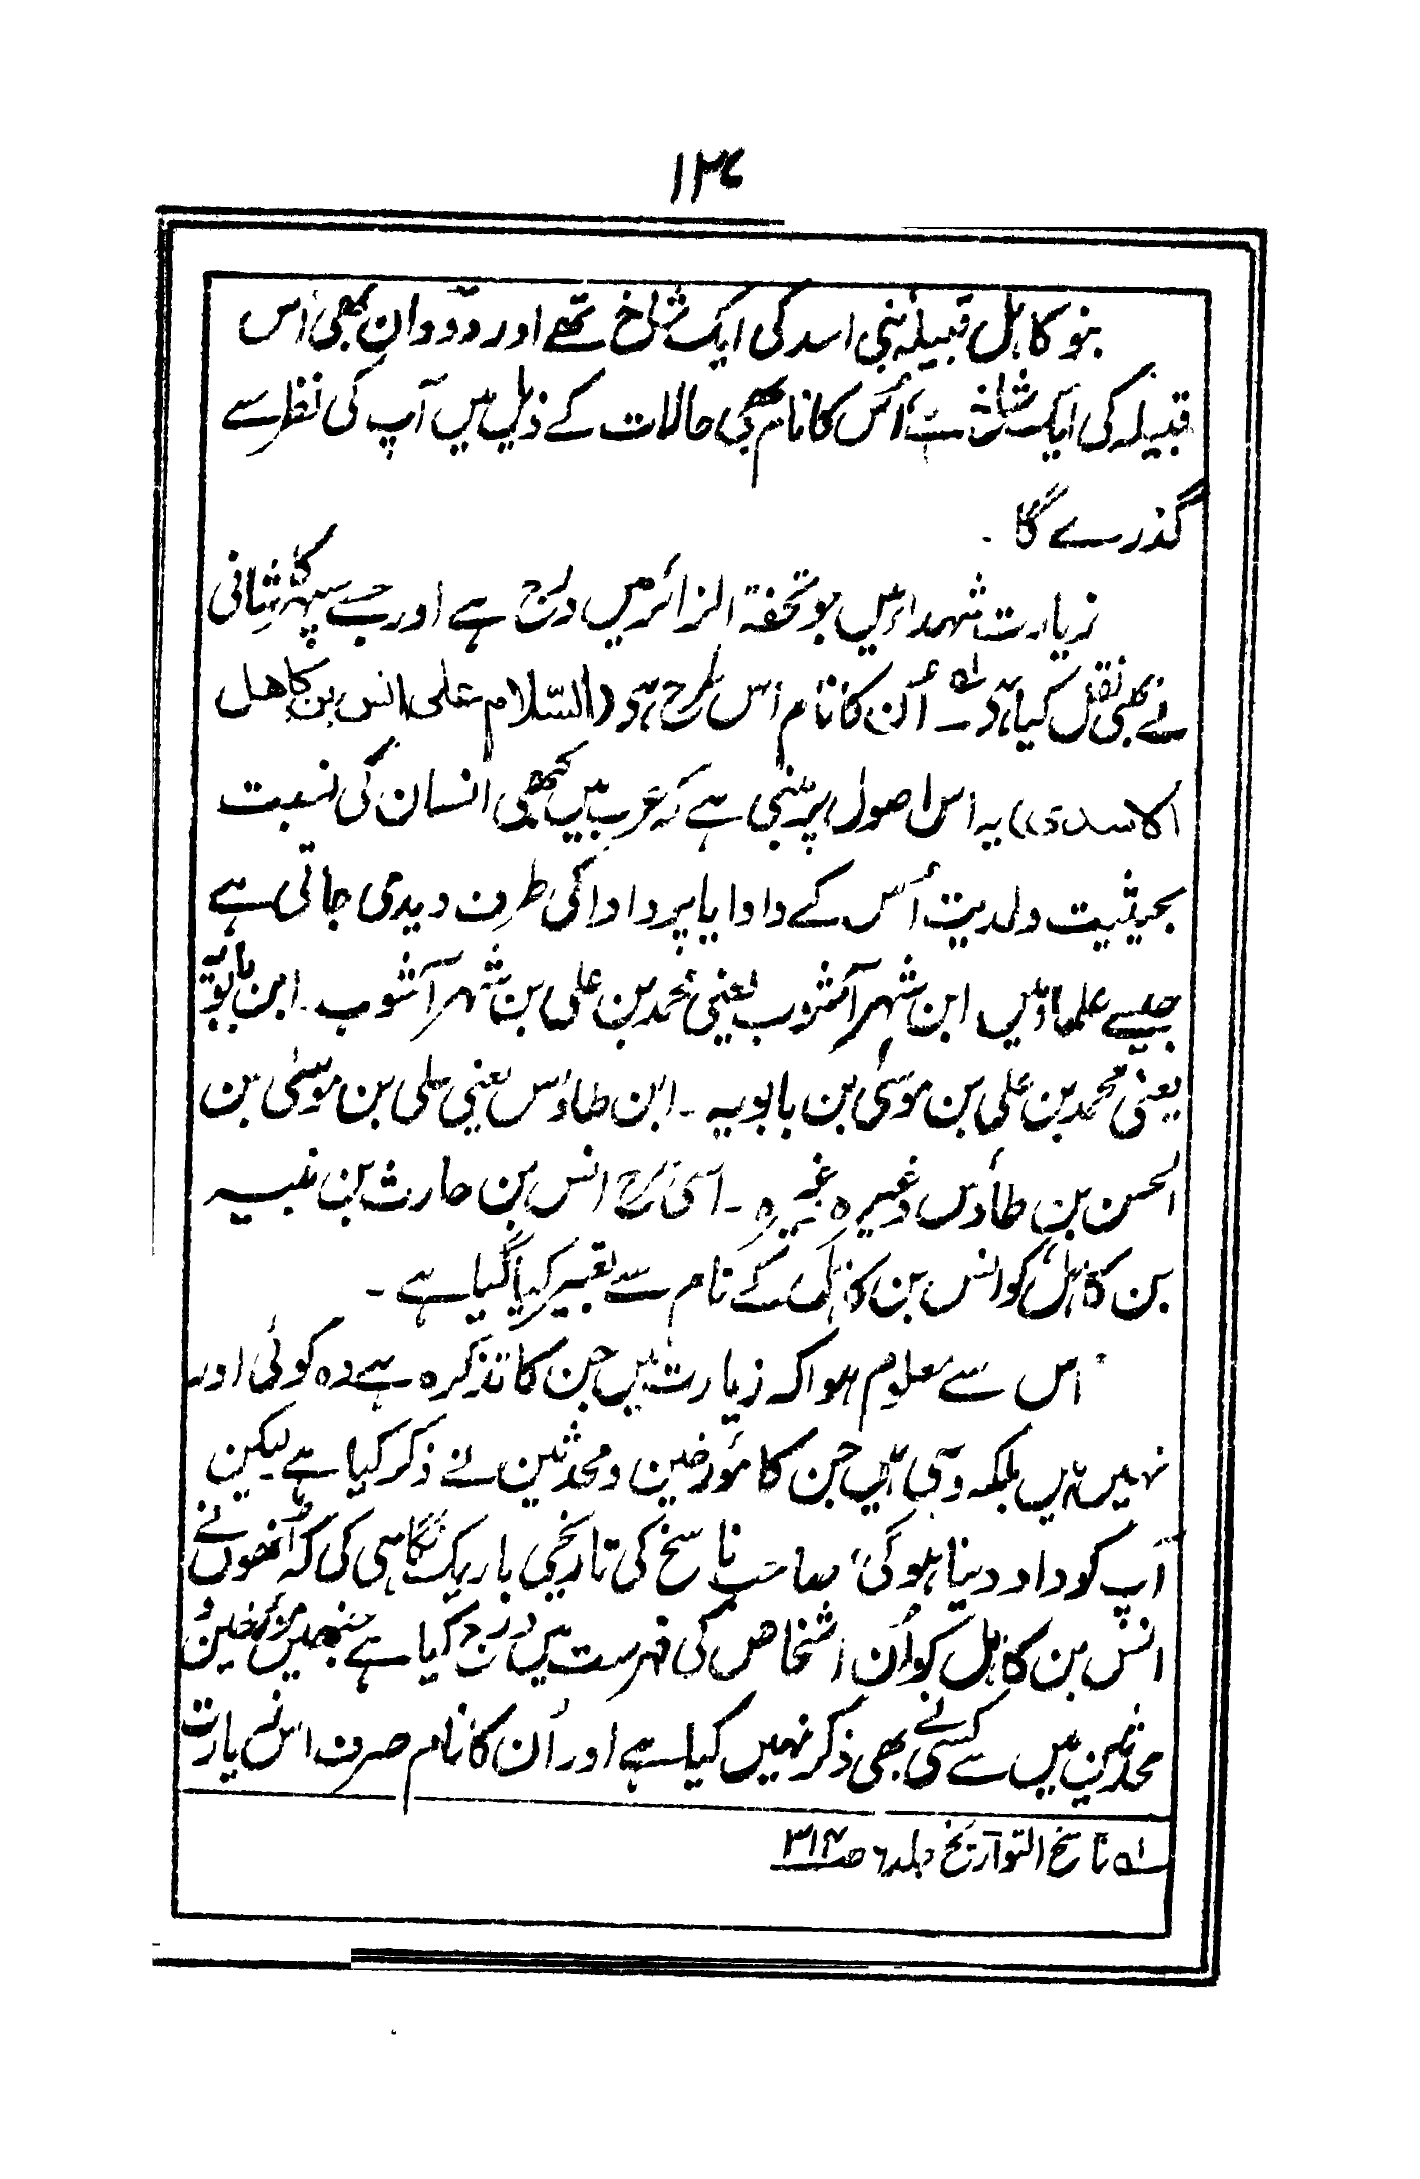 ۱۲۶
بنو کاہل قبیلۂ بنی اسد کی ایک شاخ تھے اور دودان بھی اُس
قبیلہ کی ایک شاخ ہے اُس کا نام بھی حالات کے ذیل میں آپ کی نظر سے
گذرے گا ۔
زیارت شہداء میں جو تحفۃ الزائر میں درج ہے اور جسے سپہر کاشانی
نے بھی نقل کیا ہے ؎۱ اُن کا نام اس طرح ہے (السّلام علی انس بن کاهل
الاسدی) یہ اس اصول پر مبنی ہے کہ عرب میں کبھی انسان کی نسبت
بحیثیت ولدیت اُس کے دادا یا پردادا کی طرف دیدی جاتی ہے
جیسے علماء میں ابن شہر آشوب یعنی محمد بن علی بن شہر آشوب ۔ ابن بابویہ
یعنی محمد بن علی بن موسیٰ بن بابویہ ۔ ابن طاؤس یعنی علی بن موسیٰ بن
الحسن بن طاؤس وغیرہ وغیرہ ۔ اسی طرح انس بن حارث بن نبیہ
بن کاہل کو انس بن کاہل کے نام سے تعبیر کیا گیا ہے ۔
اس سے معلوم ہوا کہ زیارت میں جن کا تذکرہ ہے وہ کوئی اور
نہیں ہیں بلکہ وہی ہیں جن کا مؤرخین و محدثین نے ذکر کیا ہے لیکن
آپ کو داد دینا ہوگی صاحب ناسخ کی تاریخی باریک نگاہی کی کہ اُنھوں نے
انس بن کاہل کو اُن اشخاص کی فہرست میں درج کیا ہے جنھیں مؤرخین و
محدثین میں سے کسی نے بھی ذکر نہیں کیا ہے اور اُن کا نام صرف اس زیارت
؎۱ ناسخ التواریخ جلد ۶ ص۳۱۴